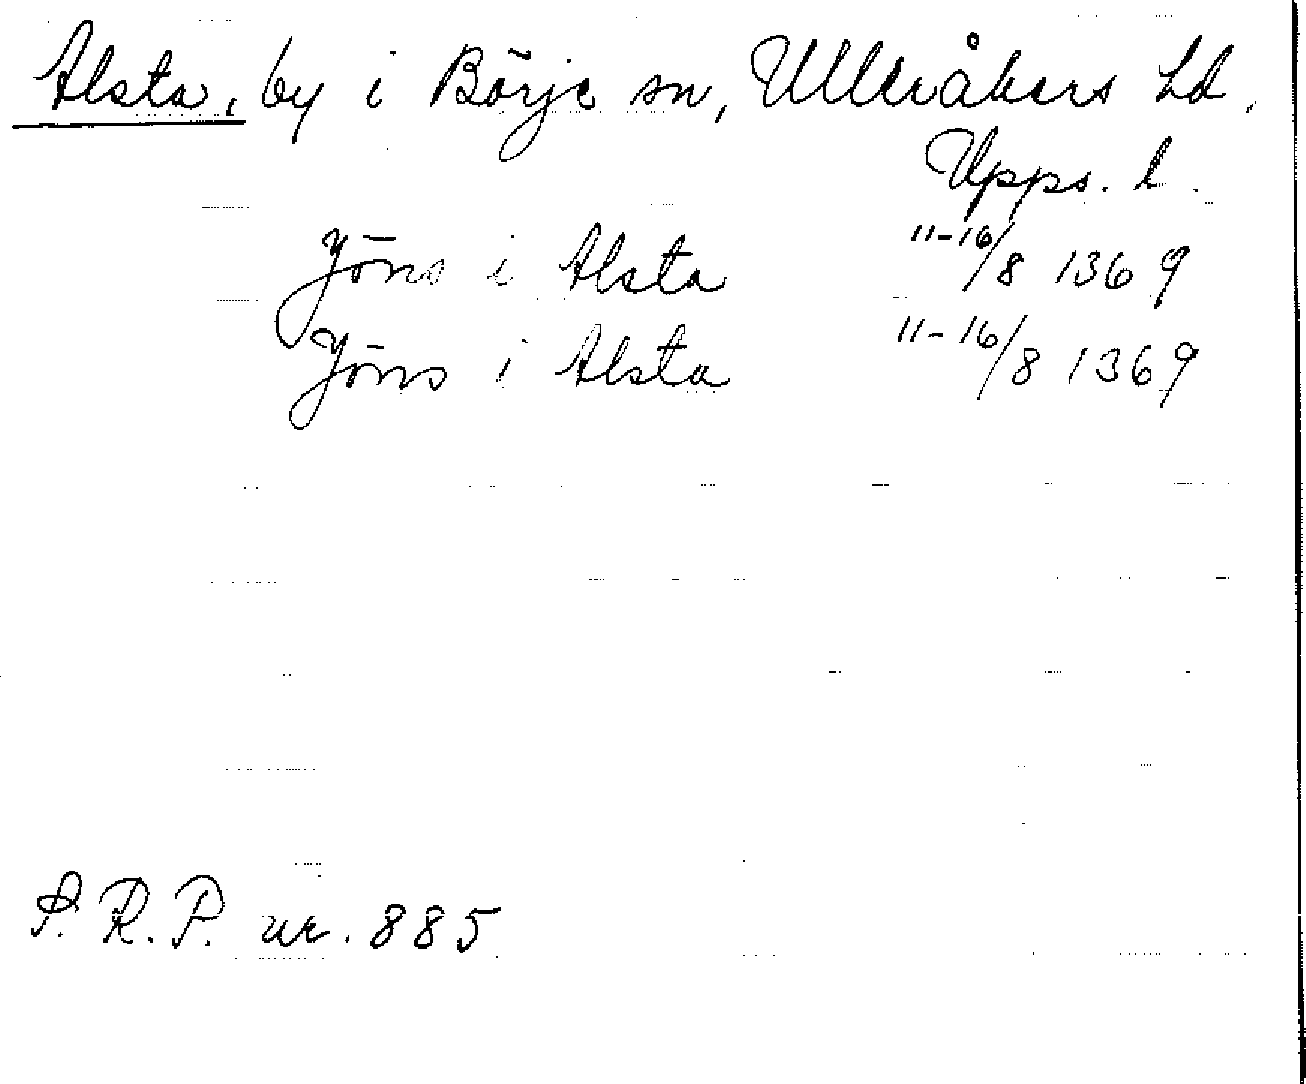 Alsta, by i Börje sn, Ulleråkers hd.
Upps. l.
Jöns i Alsta 11-16/8 1369
Jöns i Alsta 11-16/8 1369
S.R.P. nr. 885